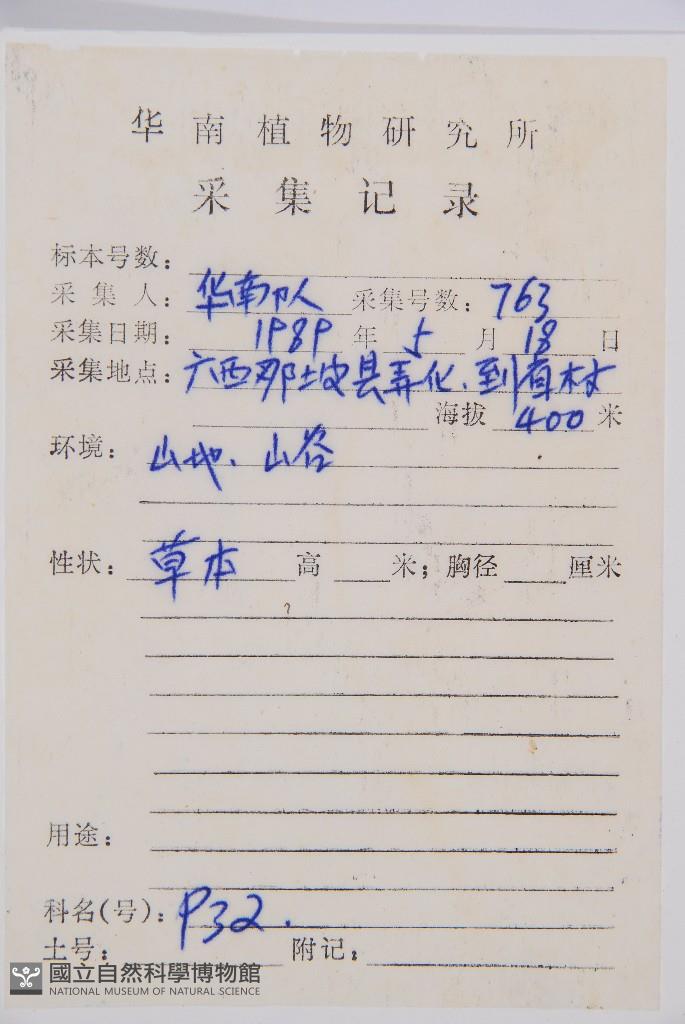 华南植物研究所
采集记录
标本号数:
采集人: 华南队 采集号数: 763
采集日期: 1989 年 5 月 18 日
采集地点: 广西那坡县弄化、到村
海拔 400 米
环境: 山地、山谷
性状: 草本 高 米; 胸径 厘米
用途:
科名(号): P32.
土号: 附记:
國立自然科學博物館
NATIONAL MUSEUM OF NATURAL SCIENCE